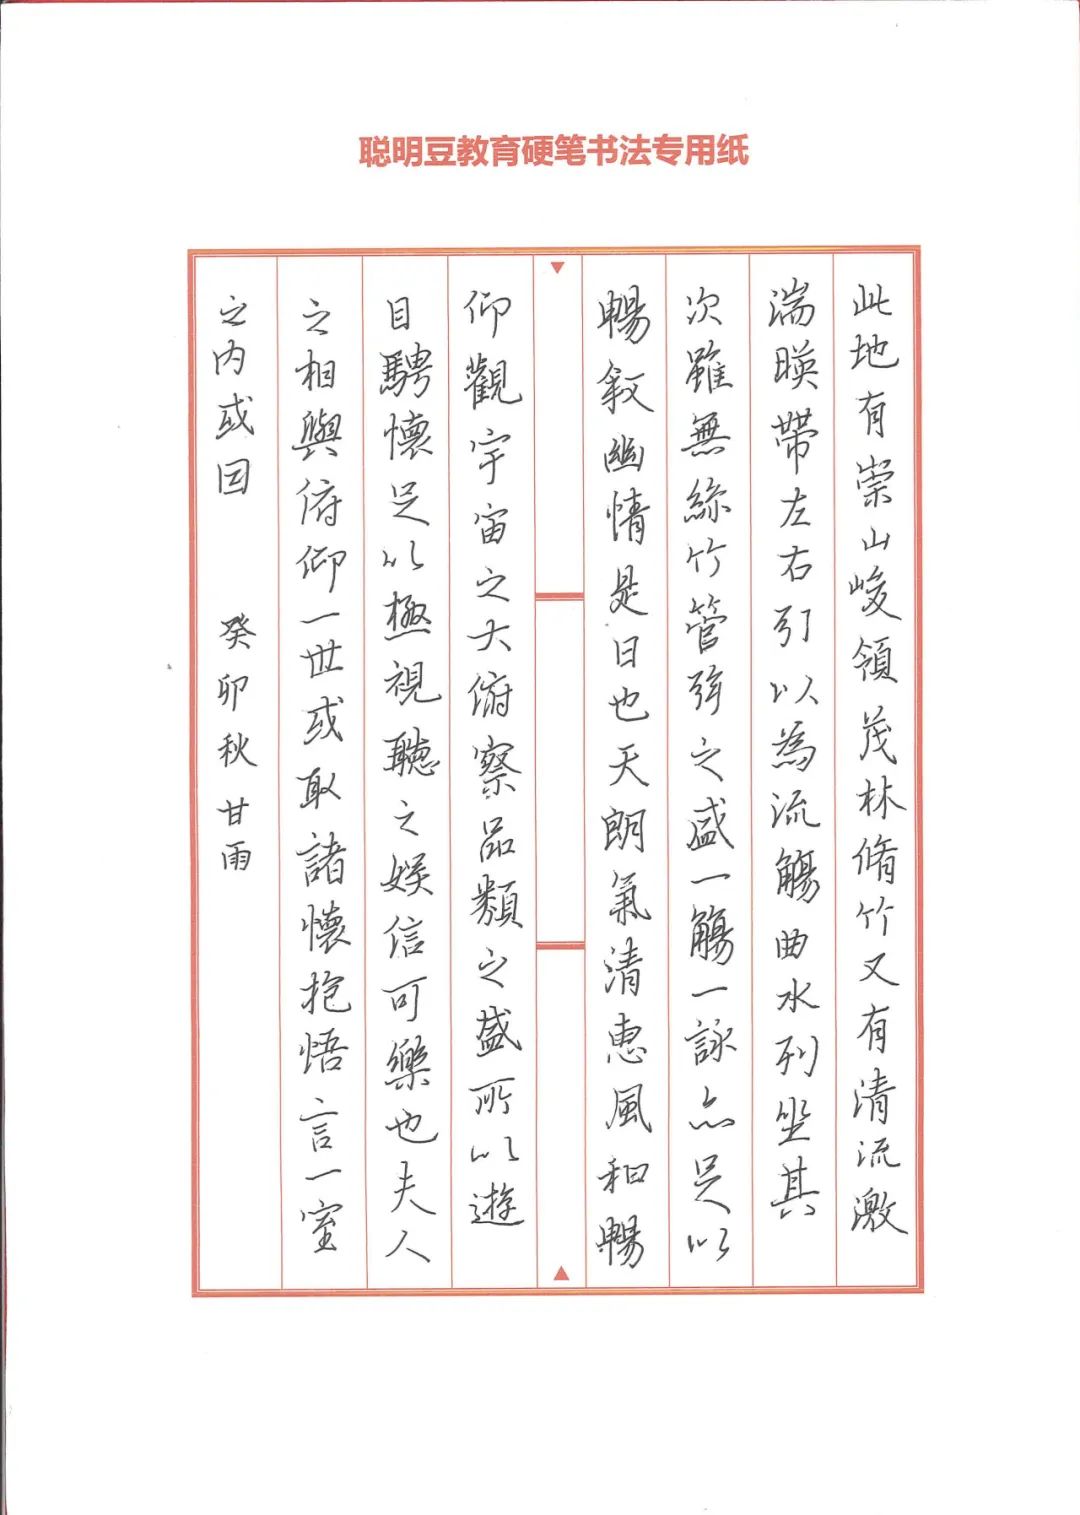 聪明豆教育硬笔书法专用纸
此地有崇山峻領茂林脩竹又有清流激
湍暎帶左右引以為流觴曲水列坐其
次雖無絲竹管弦之盛一觴一詠亦足以
暢敘幽情是日也天朗氣清惠風和暢
仰觀宇宙之大俯察品類之盛所以遊
目騁懷足以極視聽之娛信可樂也夫人
之相與俯仰一世或取諸懷抱悟言一室
之內或因
癸卯秋甘雨